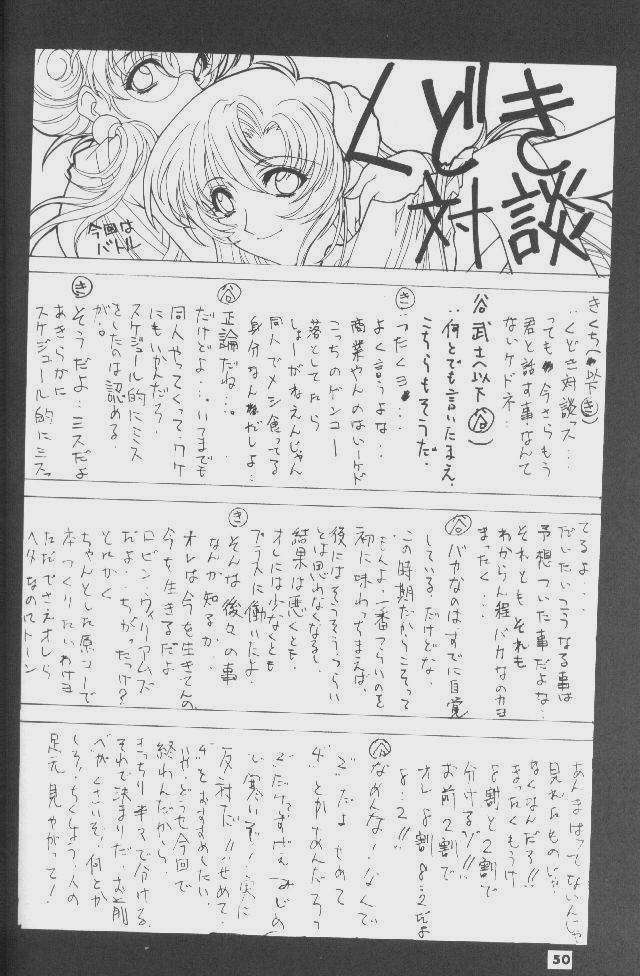 くどき
対談
今回は
バトル
きくち(以下き)
‥くどき対談ス‥
っても今さらもう
君と話す事なんて
ないケドネ‥
谷 武士(以下谷)
‥何とでも言いたまえ。
こちらもそうだ。
き
ったくヨ‥
よく言うよな‥
商業やんのはいーけど
こっちのゲンコー
落としてたら
しょーがねえんじゃん
同人でメシ食ってる
身分なんだしよ‥
谷
正論だね‥。
だけどよ‥いつまでも
同人やってくってワケ
にもいかんだろ?
スケジュール的にミス
をしたのは認める
が。
き
そうだよ‥ミスだよ
あきらかに
スケジュール的にミスっ
てるよ
だいたいこうなる事は
予想ついた事だよな‥
それともそれも
わからん程バカなのかキ
まったく‥
谷
バカなのはすでに自覚
している。だけどな、
この時期だからこそって
もんよ。一番つらいのを
初に味わっちまえば、
後にはそうそうつらい
とは思わなくなるし、
結果は悪くとも、
オレには少なくとも
プラスに働いたよ。
き
そんな後々の事
なんか知るか
オレは今を生きてんの、
今を生きるだよ
ロビン・ウィリアムズ
だよ‥ちがったっけ?
とにかく
ちゃんとした原コーで
本つくりたいわけヨ
ただでさえオレら
ヘタなのにトーン
あんまはってないんじゃ
見れたものじゃ
なくなんだろ!!
まったくもうけ
8割と2割で
分けるゾ!!
お前2割で
オレ8割8:2だよ
8:2!!
谷
なめんな!なんで
2だよせめて
4とか言めんだろっ
反対だ!!せめて
4とおすすめしたい。
いや、どうせ今回で
終わんだから、
きっちり半々で分ける。
それで決まりだ。お前
足元見やがって!
50